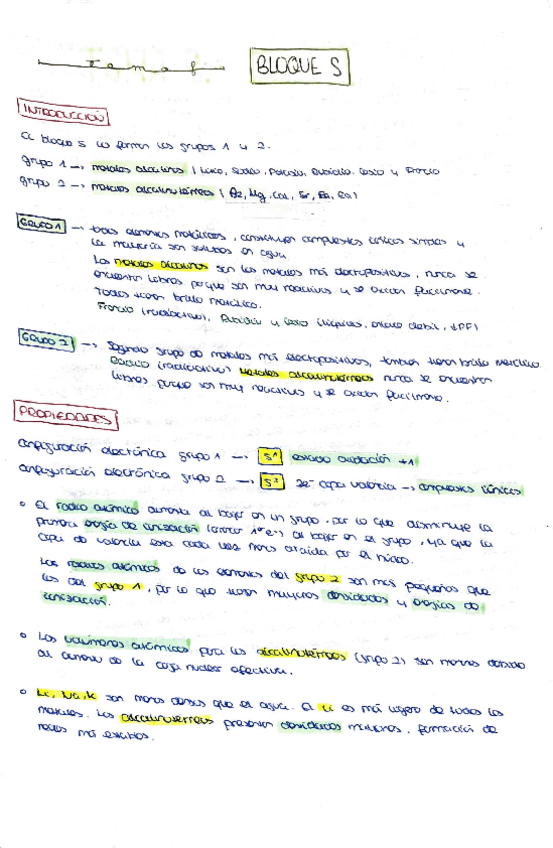 Tema 8 BLOQUE S
INTRODUCCIÓN
El bloque s lo forman los grupos 1 y 2.
grupo 1 → metales alcalinos ( Litio, Sodio, Potasio, Rubidio, Cesio y Francio
grupo 2 → metales alcalinotérreos ( Be, Mg, Ca, Sr, Ba, Ra)
GRUPO 1 → todos elementos metálicos, constituyen compuestos iónicos simples y
la mayoría son solubles en agua.
Los metales alcalinos son los metales más electropositivos, nunca se
encuentran libres porque son muy reactivos y se oxidan fácilmente.
Todos tienen brillo metálico.
Francio (radiactivo), Rubidio y Cesio (líquidos, enlace débil, ↓PF)
GRUPO 2 → Segundo grupo de metales más electropositivos, también tienen brillo metálico.
Radio (radiactivo) Metales alcalinotérreos nunca se encuentran
libres porque son muy reactivos y se oxidan fácilmente.
PROPIEDADES
configuración electrónica grupo 1 → s¹ estado oxidación +1
configuración electrónica grupo 2 → s² 2e⁻ capa valencia → compuestos iónicos
• El radio atómico aumenta al bajar en un grupo, por lo que disminuye la
primera energía de ionización (arrancar 1 e⁻) al bajar en el grupo, ya que la
capa de valencia está cada vez menos atraída por el núcleo.
Los radios atómicos de los elementos del grupo 2 son más pequeños que
los del grupo 1, por lo que tienen mayores densidades y energías de
ionización.
• Los volúmenes atómicos para los alcalinotérreos (grupo 2) son menores debido
al aumento de la carga nuclear efectiva.
• Li, Na, K son menos densos que el agua. El Li es más ligero de todos los
metales. Los alcalinotérreos presentan densidades mayores, formación de
redes más estables.